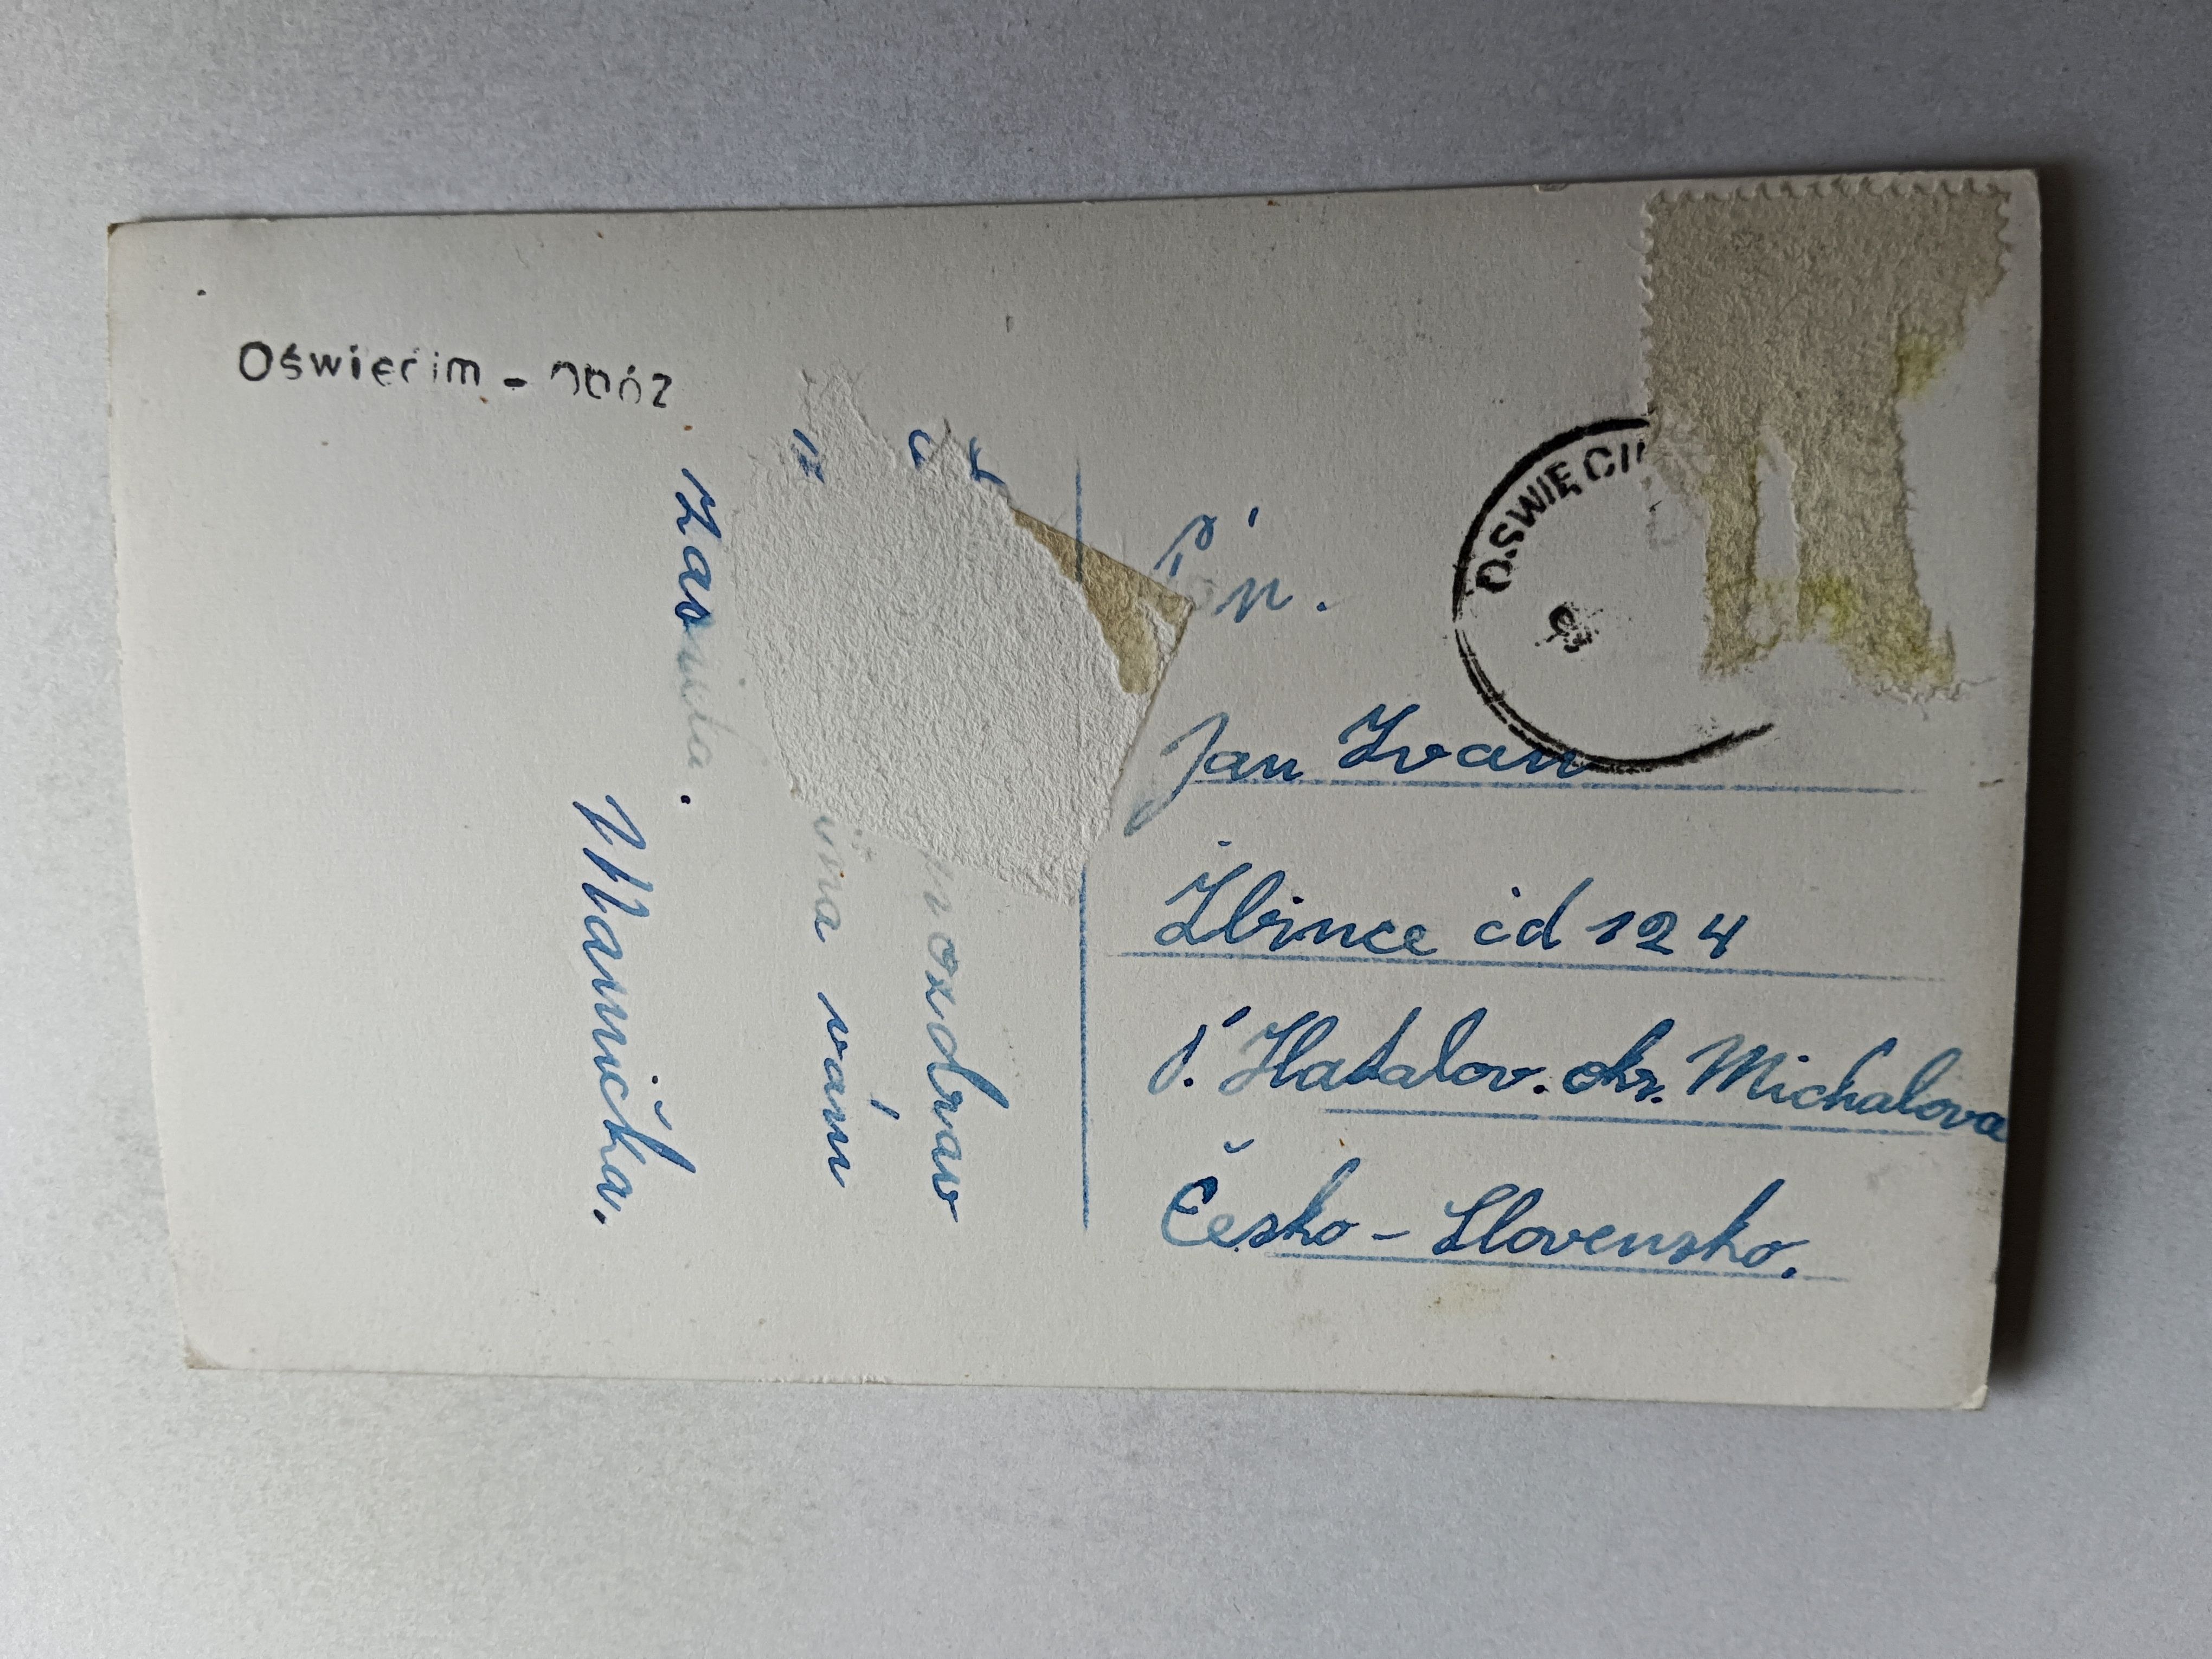 Oświęcim - obóz
pozdrav
vám
Zasiela.
Mamička.
OŚWIĘCIM
Pán.
Jan Ivan
Zbince čd 124
p. Hatalov. okr. Michalova
Česko-Slovensko.